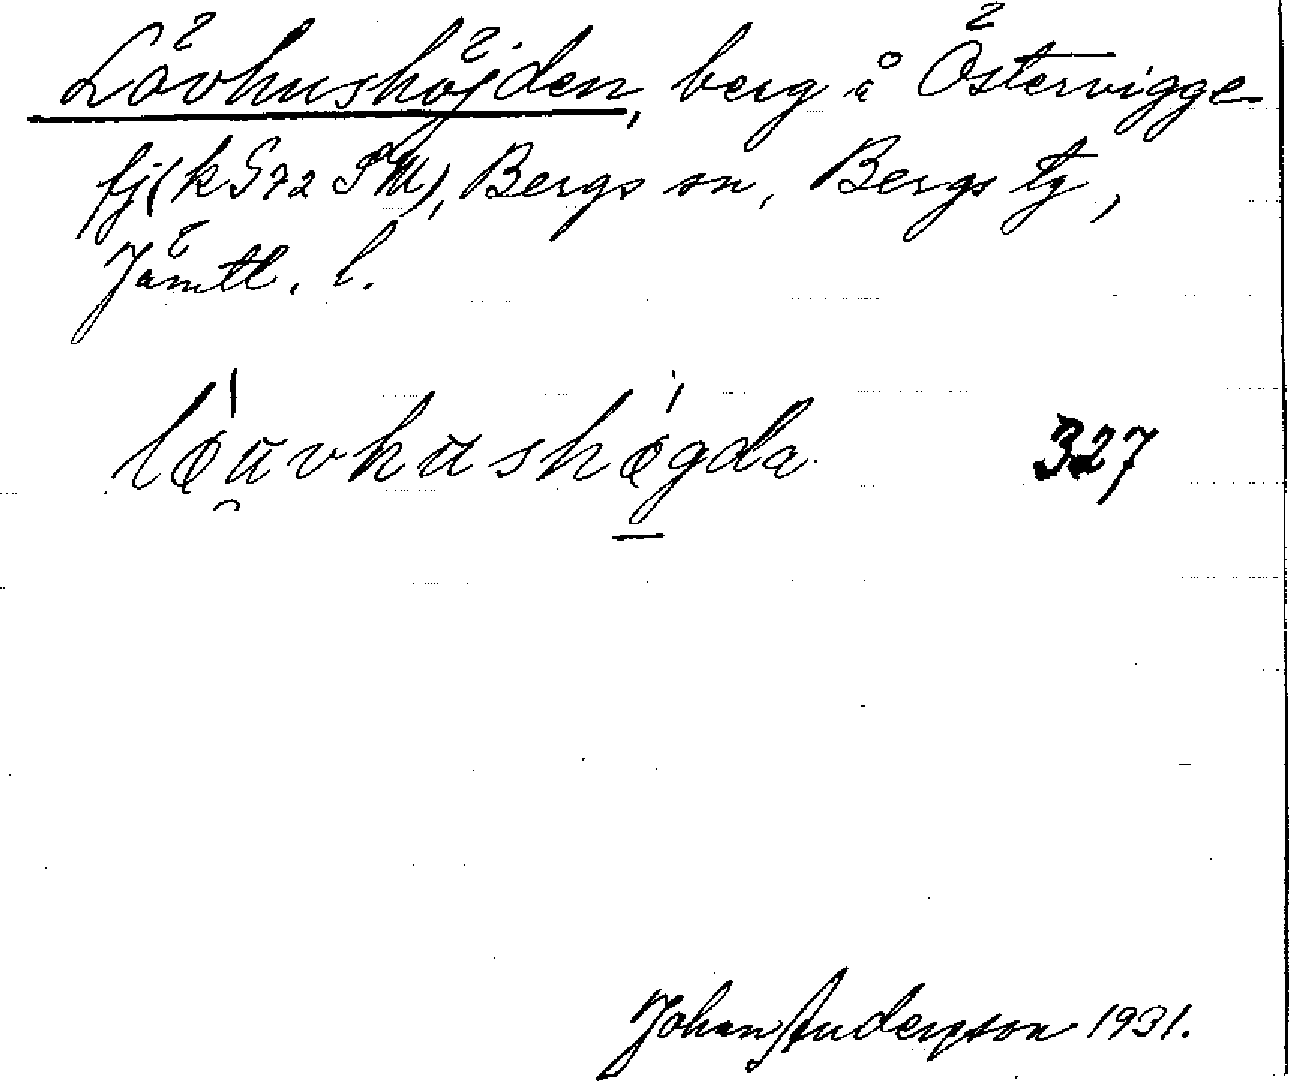 Lövhushöjden, berg å Östervigge
fj (k S72 SM), Bergs sn, Bergs tg,
Jämtl. l.
327
Johan Anderson 1931.